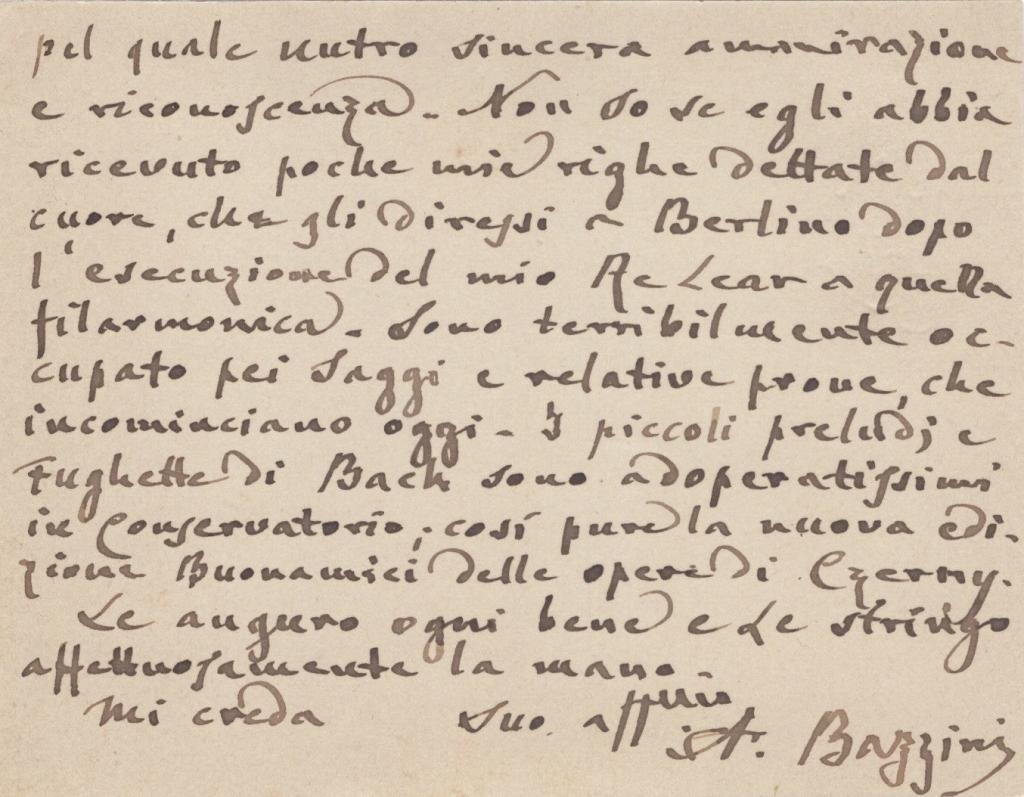 pel quale nutro sincera ammirazione
e riconoscenza. Non so se egli abbia
ricevuto poche mie righe dettate dal
cuore, che gli diressi a Berlino dopo
l'esecuzione del mio Re Lear a quella
filarmonica. Sono terribilmente oc-
cupato pei Saggi e relative prove, che
incominciano oggi. I piccoli preludj e
Fughette di Bach sono adoperatissimi
in Conservatorio; così pure la nuova edi-
zione Buonamici delle opere di Czerny.
Le auguro ogni bene e Le stringo
affettuosamente la mano.
Mi creda Suo affmo
A. Bazzini